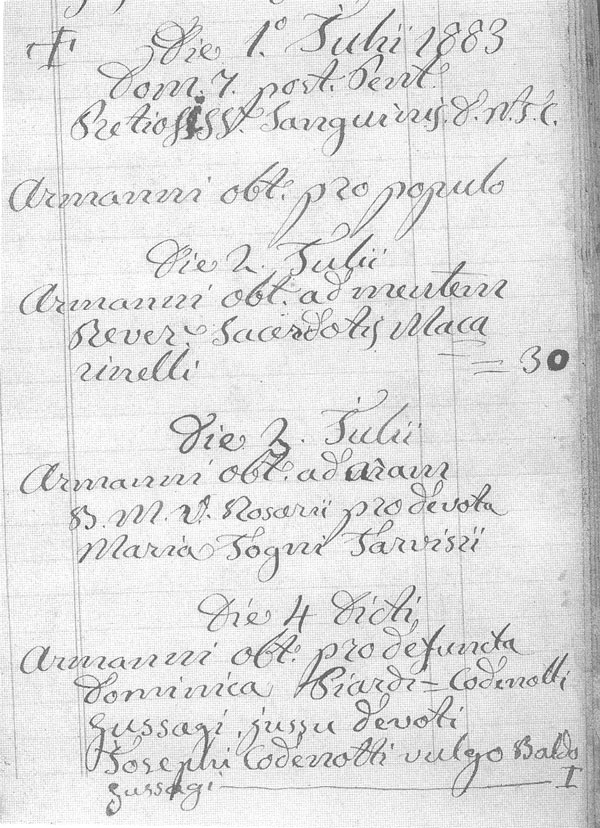 Die 1.° Julii 1883
Dom. 7. post. Pent.
Pretiosiss. Sanguinis. d. n. J. C.
Armanni obt. pro populo
Die 2. Julii
Armanni obt. ad mentem
Rever. Sacerdotis Maca
rinelli = = 30
Die 3. Julii
Armanni obt. ad aram
B. M. V. Rosarii pro devota
Maria Togni Tarvisii
Die 4 dicti
Armanni obt. pro defuncta
Dominica Piardi = Codenotti
Gussagi, jussu devoti
Josephi Codenotti vulgo Baldo
Gussagi